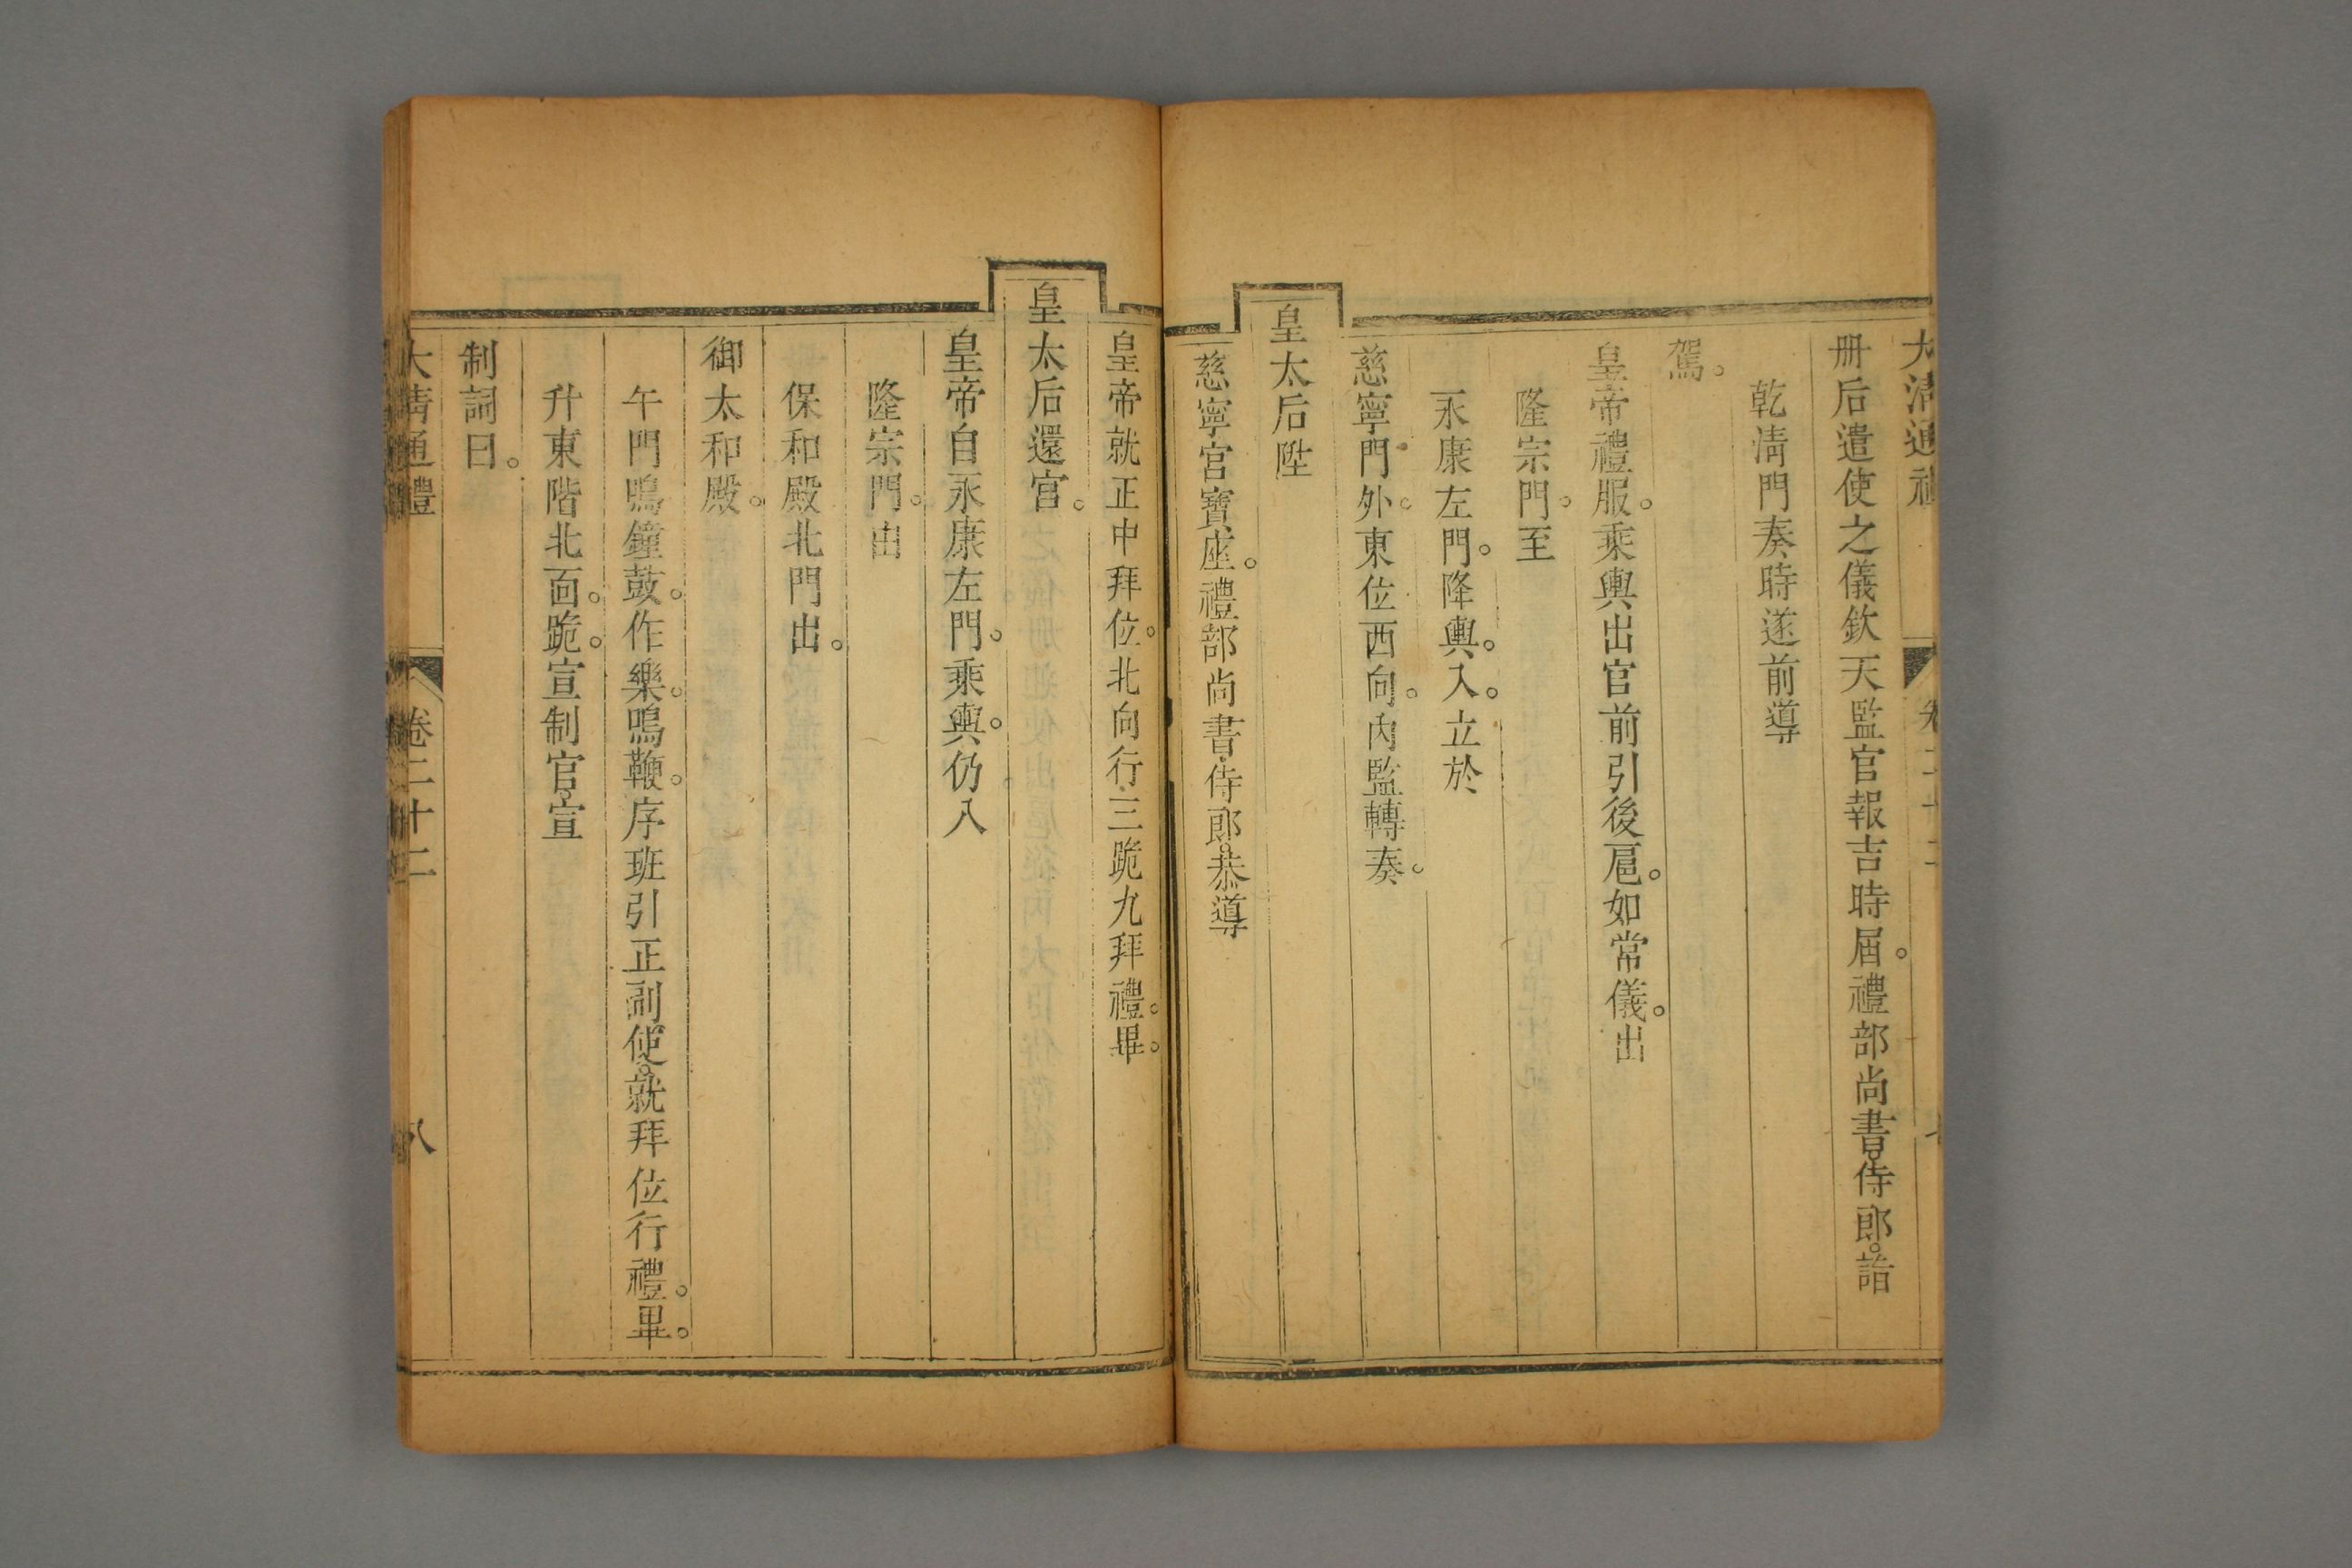 大清通禮
册后遣使之儀欽天監官報吉時屆。禮部尚書。侍郎。詣
乾淸門奏時遂前導
駕。
皇帝禮服。乘輿出宫前引後扈。如常儀。出
隆宗門。至
永康左門。降輿。入。立於
慈寧門。外。東位西向。內監轉奏。
皇太后陞
慈寧宮寶座。禮部尚書。侍郎。恭導
皇帝就正中拜位。北向行三跪九拜禮。畢。
皇太后還宮。
皇帝自永康左門。乘輿。仍入
隆宗門。由
保和殿北門出。
御太和殿。
午門鳴鐘鼓。作樂。鳴鞭。序班引正副使。就拜位行禮。畢。
升東階北面。跪。宣制官。宣
制詞曰。
大清通禮 卷二十二 八